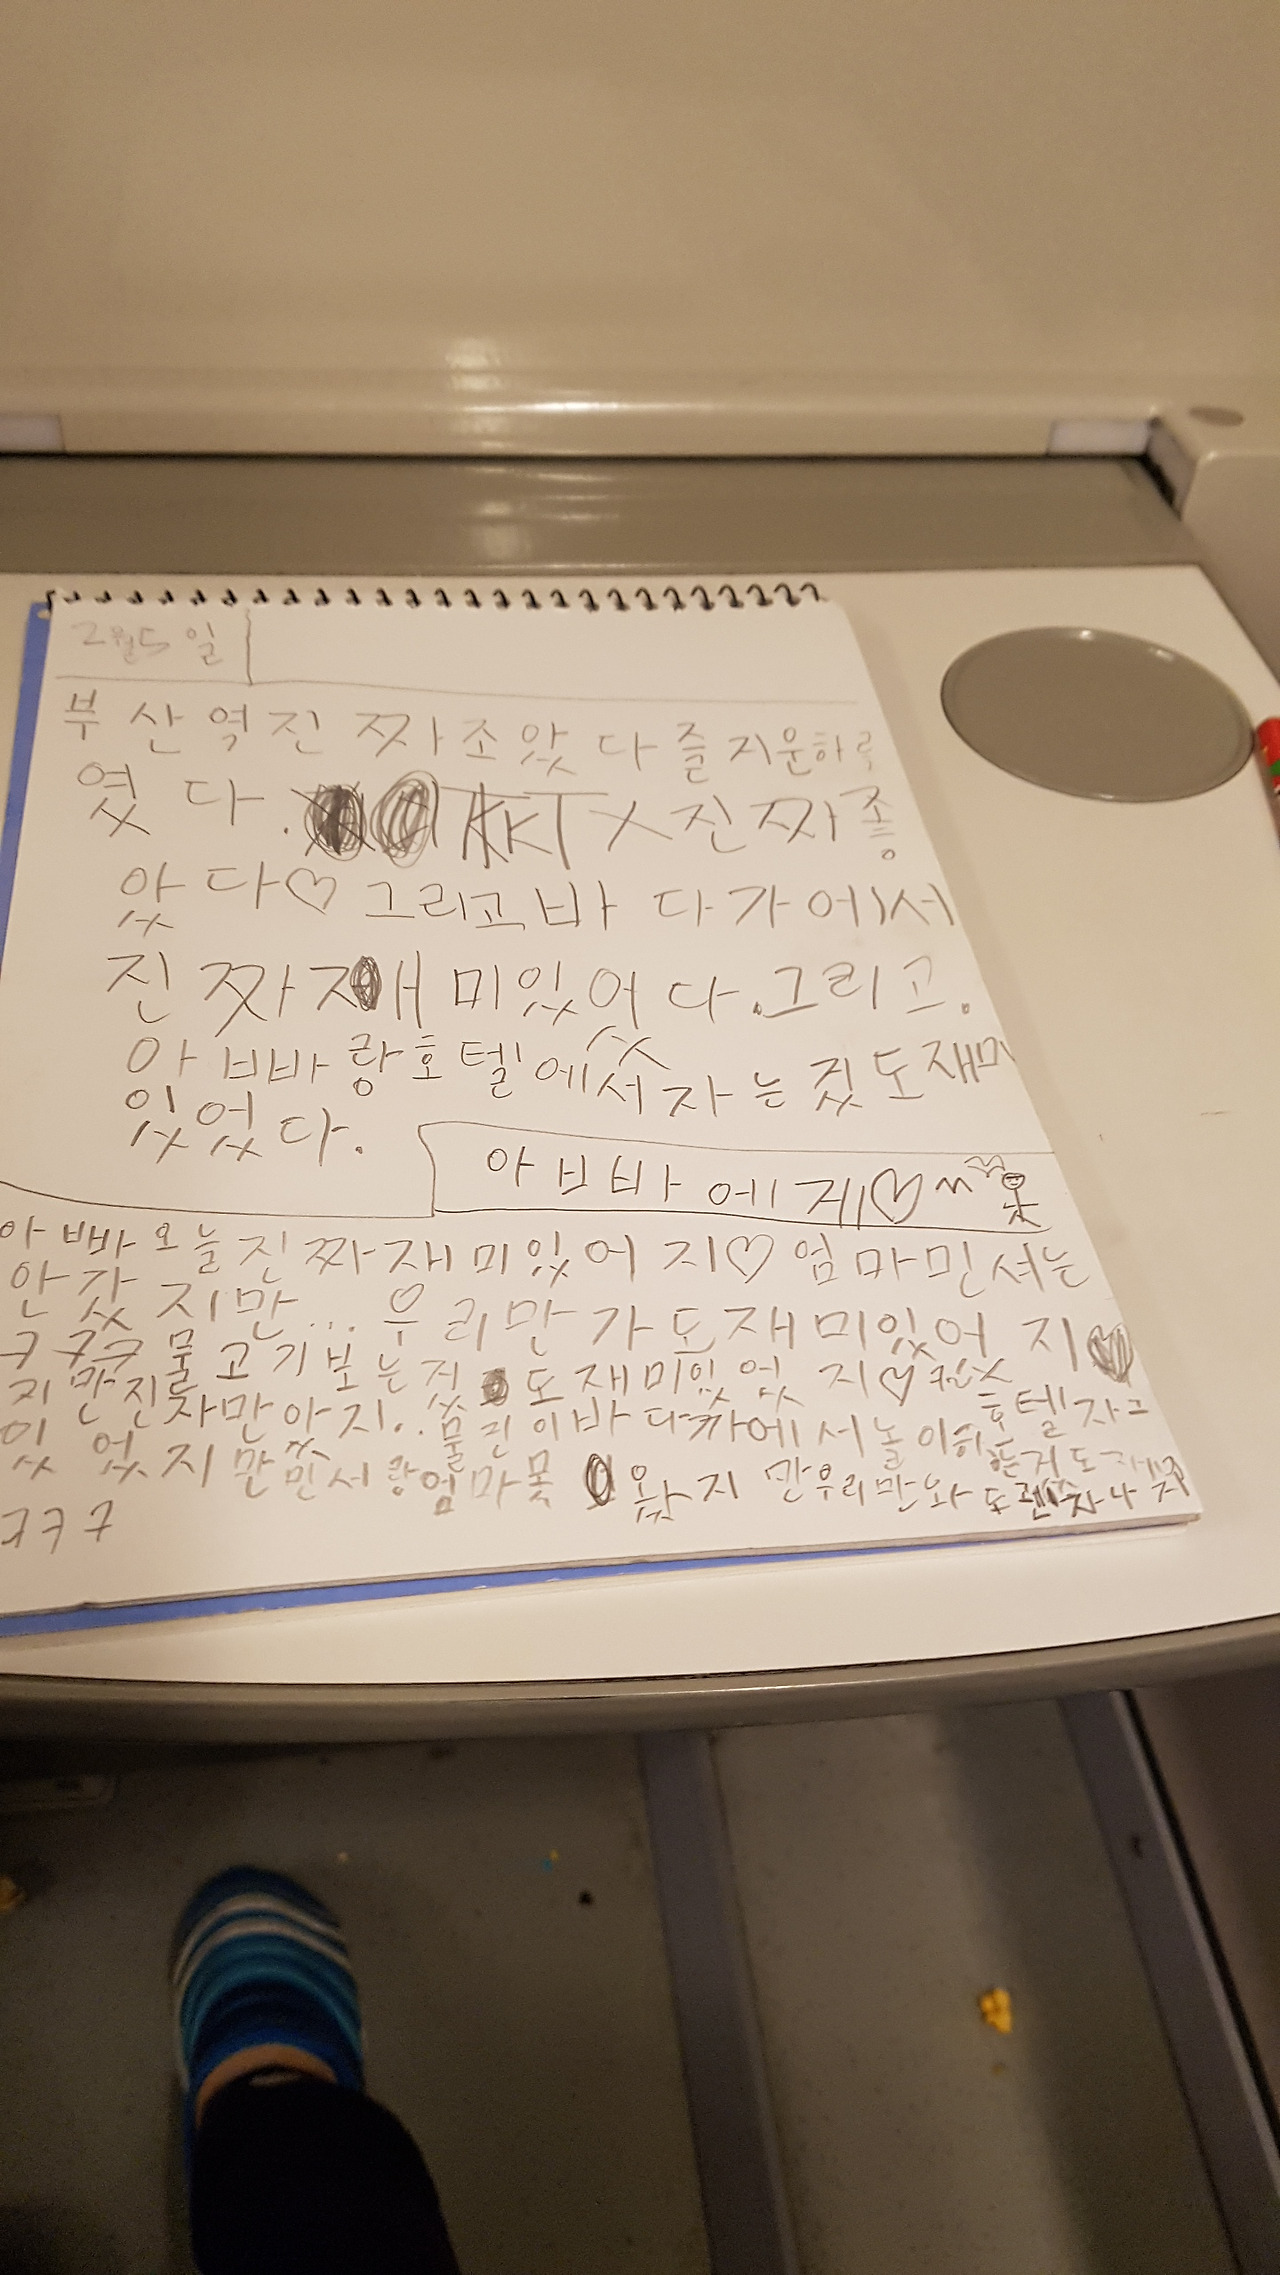 2월5일
부산역진짜조았다즐거운하루
였다. KTX진짜좋
았다♡그리고바다가에서
진짜재미있어다.그리고.
아빠랑호텔에서자는것도재미
있었다.
아빠에게♡
아빠오늘진짜재미있어지♡엄마민서는
안갔지만...우리만가도재미있어지
ㅋㅋㅋ물고기보는것도재미있었지♡
지만진짜만았지..물진이바다까에서놀이
호텔자그
있었지만민서랑엄마못왔지만우리만와도
ㅋㅋㅋ